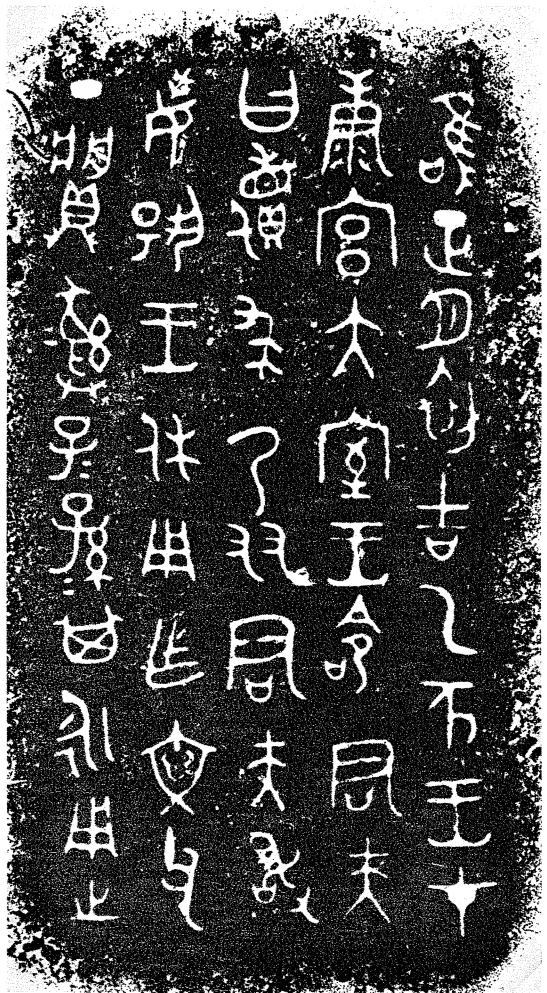 唯正月初吉乙亥王才
康宮大室王命君夫
曰儥求乃友君夫敢
揚王休用乍文父
丁䵼彝子=孫=其永用之